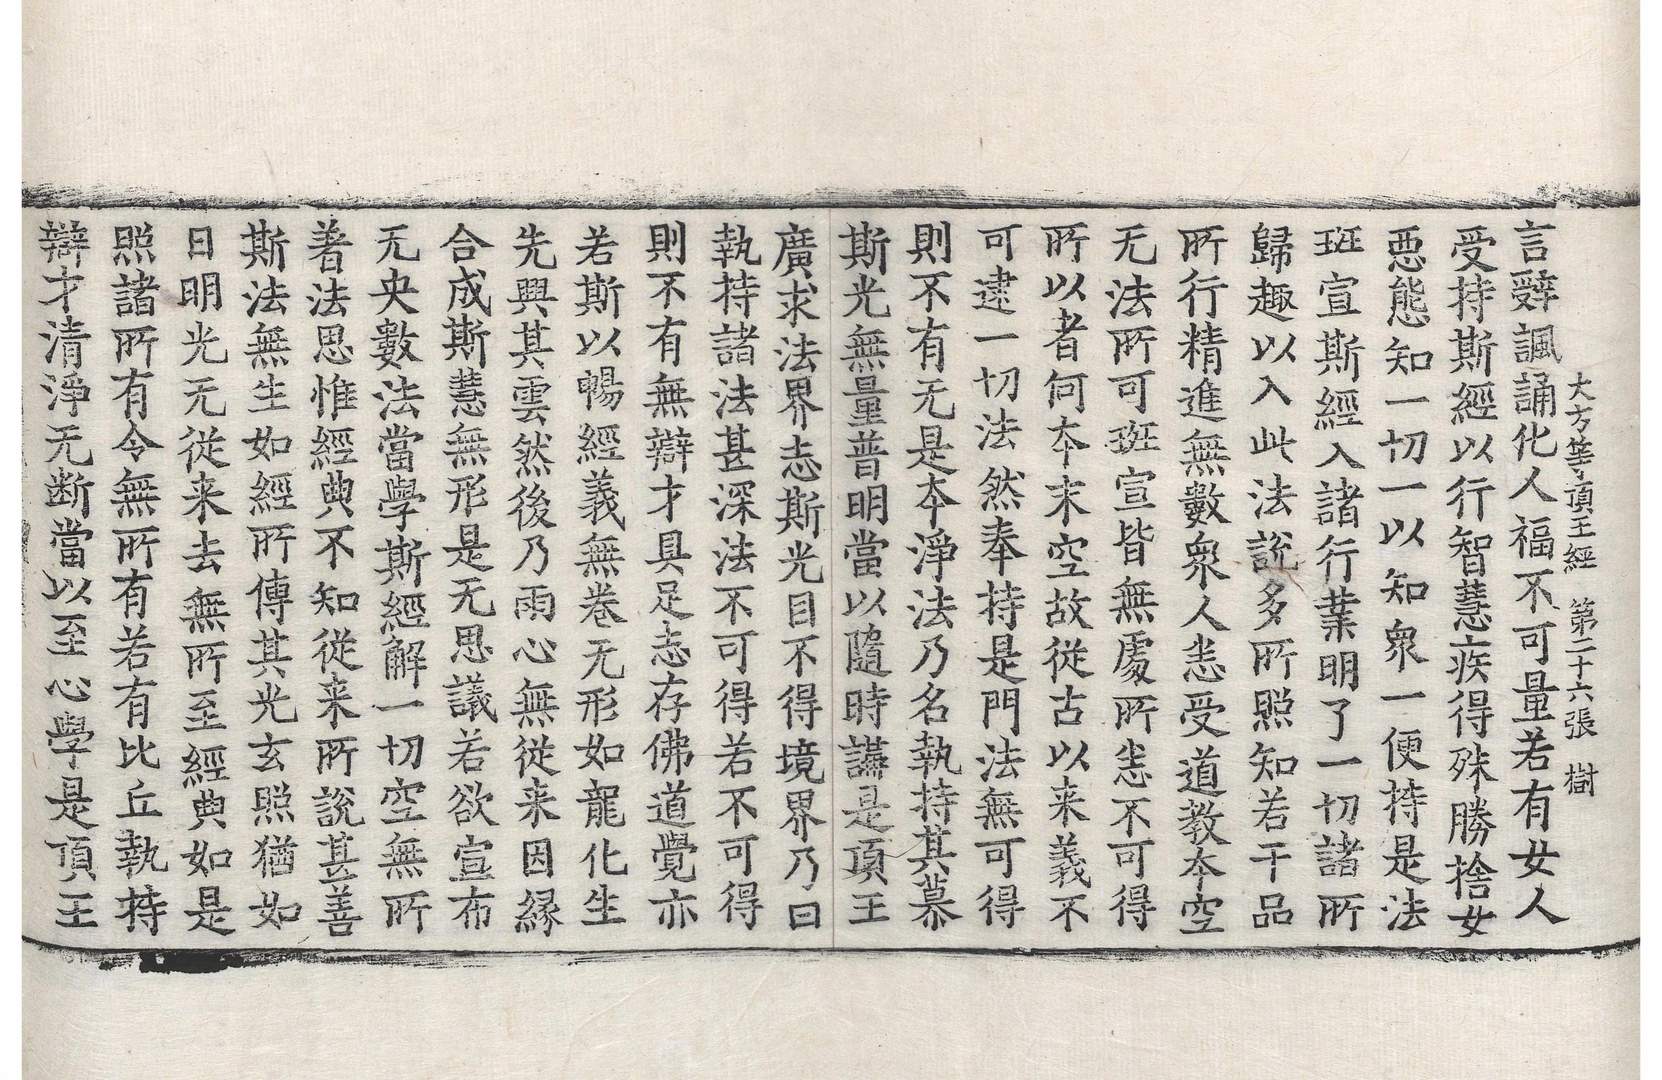 大方等頂王經　第二十六張　樹
言辭諷誦化人福不可量若有女人
受持斯經以行智慧疾得殊勝捨女
惡態知一切一以知衆一便持是法
班宣斯經入諸行業明了一切諸所
歸趣以入此法說多所照知若干品
所行精進無數衆人恙受道教夲空
无法所可班宣皆無處所恙不可得
所以者何夲末空故從古以来義不
可逮一切法然奉持是門法無可得
則不有无是夲淨法乃名執持其慕
斯光無量普明當以隨時講是頂王
廣求法界志斯光目不得境界乃曰
執持諸法甚深法不可得若不可得
則不有無辯才具足志存佛道覺亦
若斯以暢經義無卷无形如龍化生
先興其雲然後乃雨心無從来因緣
合成斯慧無形是无思議若欲宣布
无央數法當學斯經解一切空無所
著法思惟經典不知從来所說甚善
斯法無生如經所傳其光玄照猶如
日明光无從来去無所至經典如是
照諸所有令無所有若有比丘執持
辯才清淨无断當以至心學是頂王